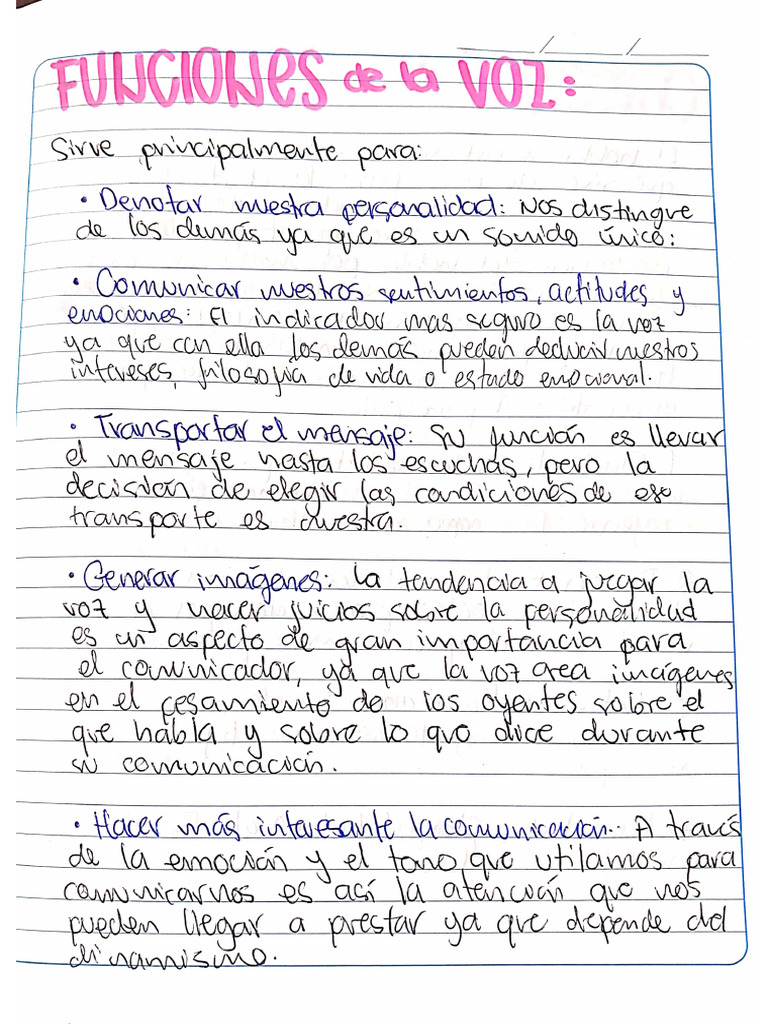 FUNCIONES de la VOZ:
Sirve principalmente para:
• Denotar nuestra personalidad: Nos distingue
de los demás ya que es un sonido único:
• Comunicar nuestros sentimientos, actitudes y
emociones: El indicador mas seguro es la voz
ya que con ella los demás pueden deducir nuestros
intereses, filosofía de vida o estado emocional.
• Transportar el mensaje: Su función es llevar
el mensaje hasta los escuchas, pero la
decisión de elegir las condiciones de ese
transporte es nuestra.
• Generar imágenes: La tendencia a juzgar la
voz y hacer juicios sobre la personalidad
es un aspecto de gran importancia para
el comunicador, ya que la voz crea imágenes
en el pesamiento de los oyentes sobre el
que habla y sobre lo que dice durante
su comunicación.
• Hacer más interesante la comunicación.. A través
de la emoción y el tono que utilamos para
comunicarnos es así la atención que nos
pueden llegar a prestar ya que depende del
dinamismo.